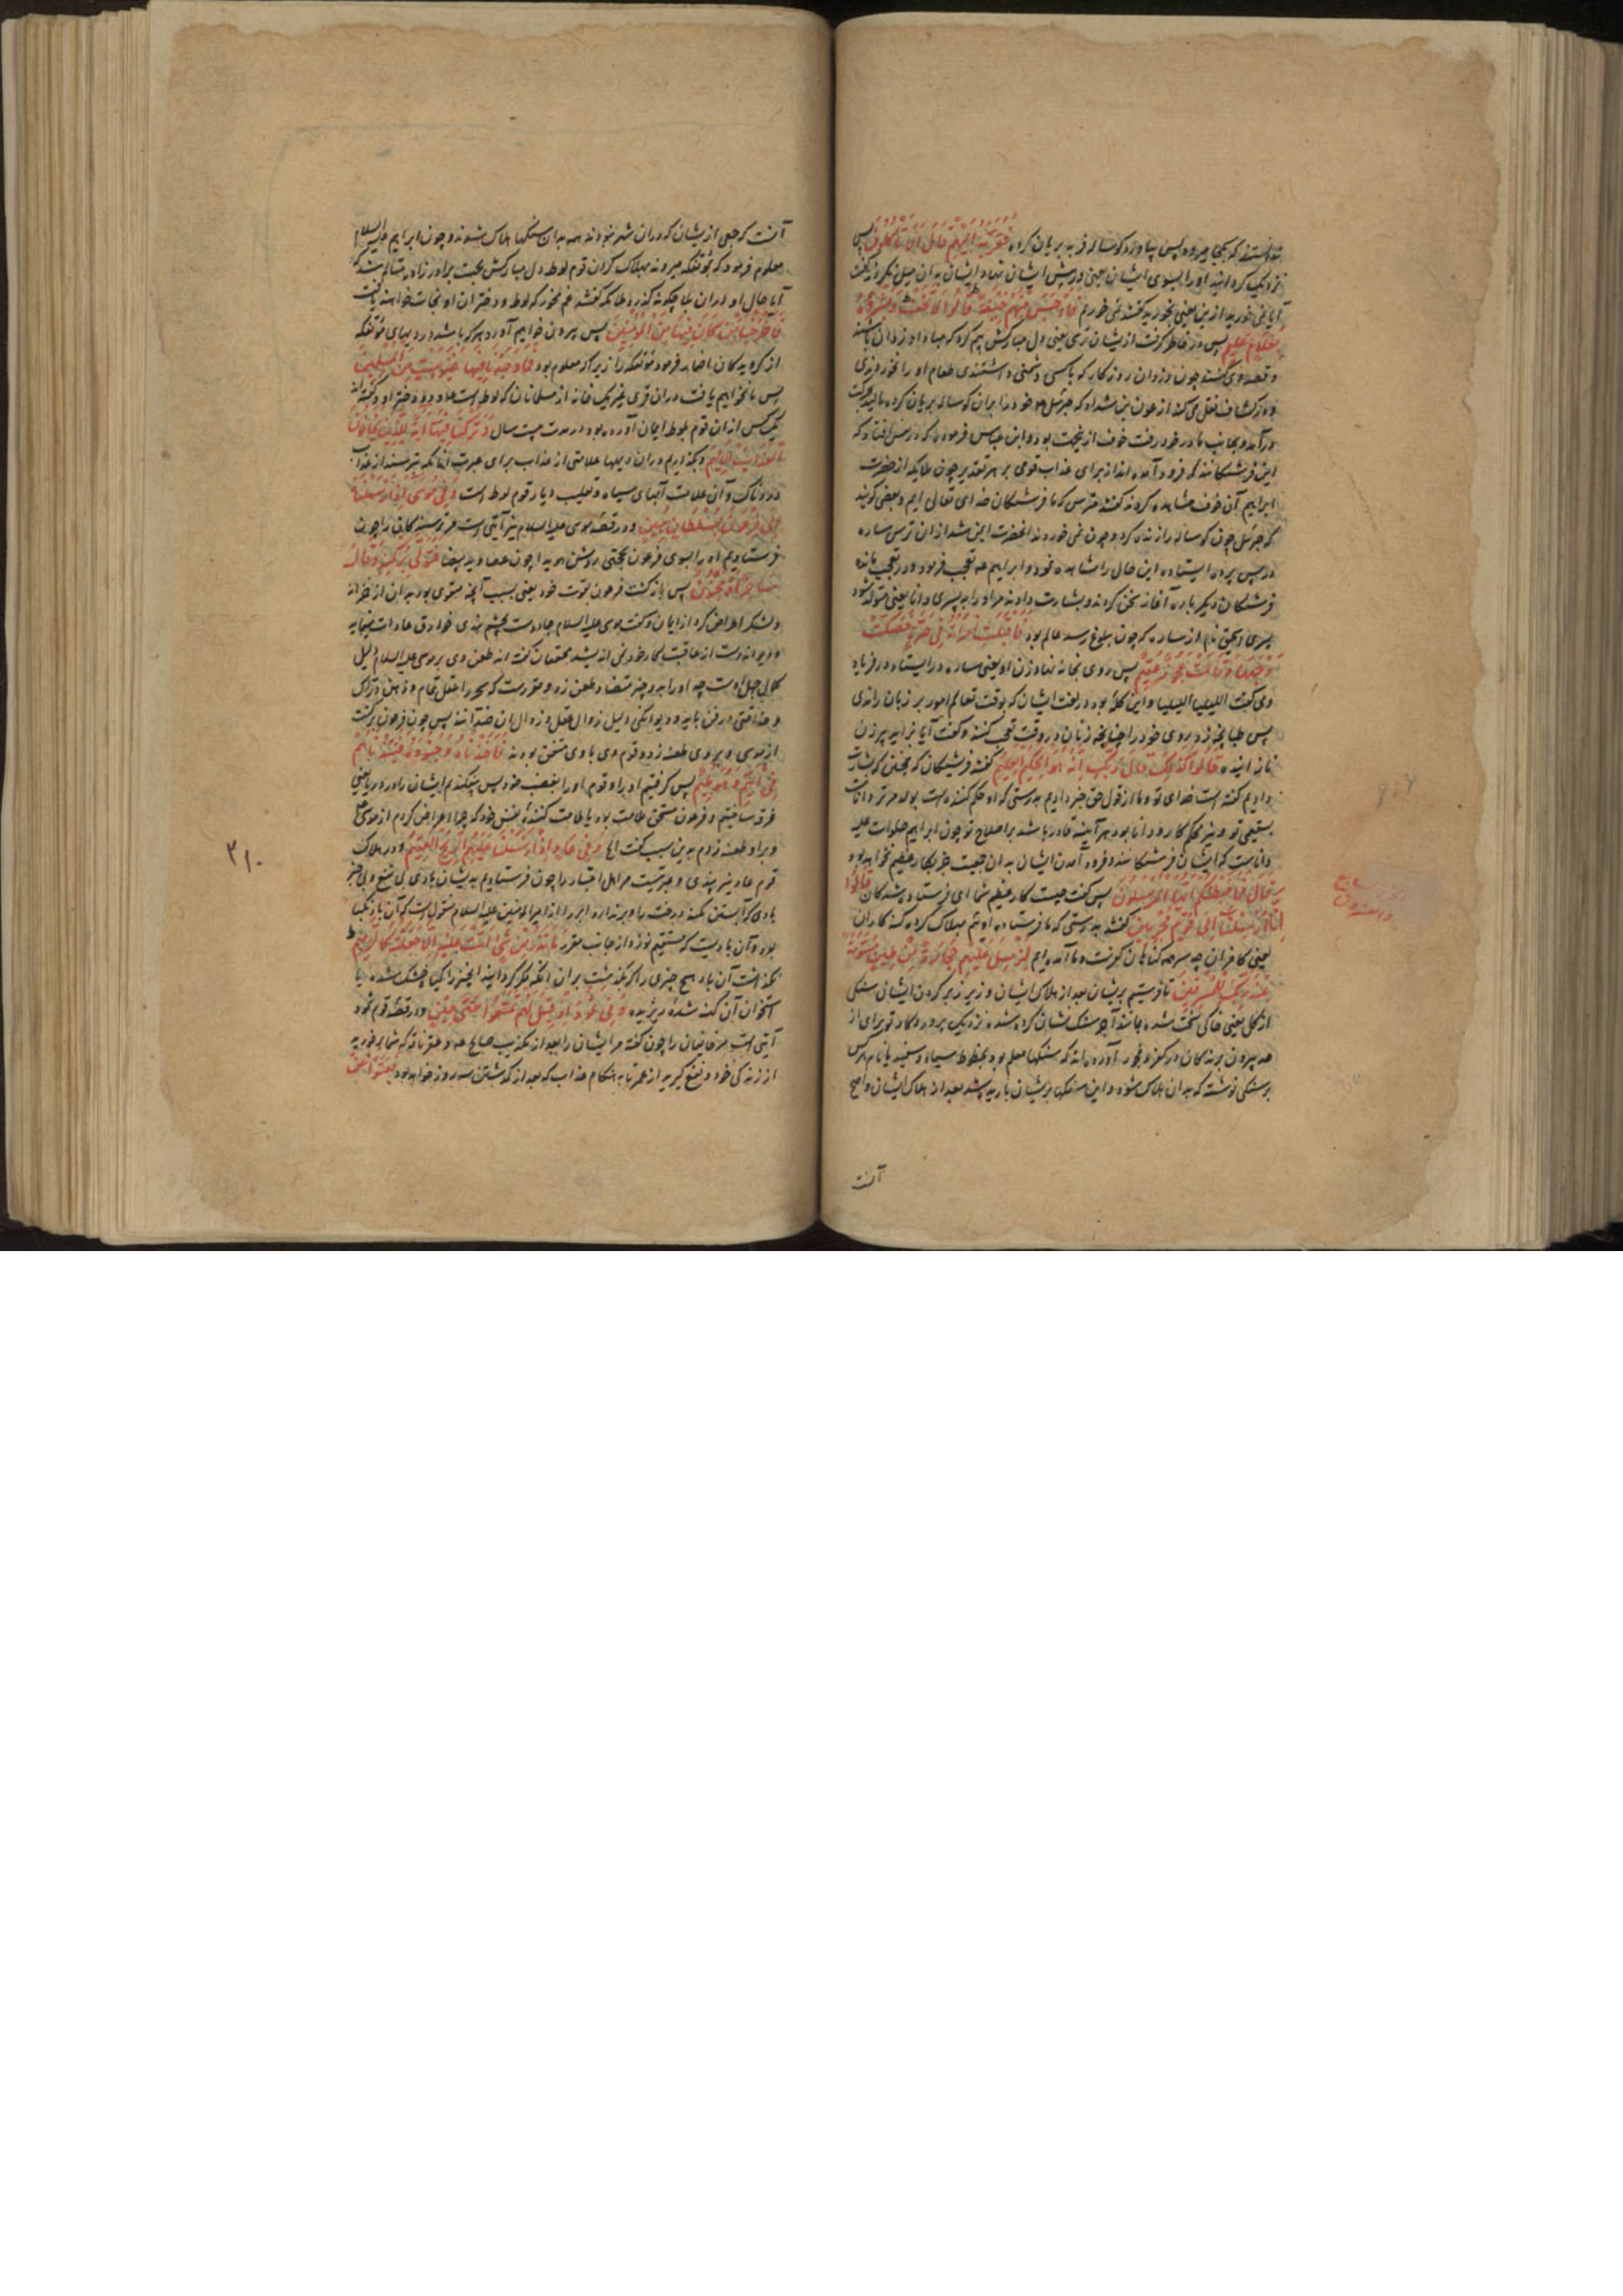 ندانستند که بکجا میرود پس بیاورد گوساله فربه بریان کرده فَقَرَّبَهُ إِلَيْهِمْ قَالَ أَلَا تَأْكُلُونَ پس
نزدیک گردانید او را بسوی ایشان یعنی در پیش ایشان نهاد و ایشان بدان میل نکردند گفت
آیا نمی خورید ازین یعنی بخورید گفتند نمی خوریم فَأَوْجَسَ مِنْهُمْ خِيفَةً قَالُوا لَا تَخَفْ وَبَشَّرُوهُ
بِغُلَامٍ عَلِيمٍ پس در خاطر گرفت ازیشان ترسی یعنی دل مبارکش بیم کرد که مبادا دزدان باشند
و قصد وی کنند چون دزدان روزگار که با کسی دشمنی داشتندی طعام او را نخوردندی
و در کشاف نقل می کند از عون بن شداد که جبرئیل خود را بران گوساله بریان کرده مالید
درآمد و بجانب مادر خود رفت خوف از بجهت بود و ابن عباس فرموده که در دلش افتاد که
این فرشتگانند که فرود آمده اند از برای عذاب قومی بر هر تقدیر چون ملایکه از حضرت
ابراهیم آن خوف مشاهده کردند گفتند مترس که ما فرشتگان خدای تعالی ایم و بعضی گویند
که جبرئیل چون گوساله را زنده کرد و چون نمی خوردند آنحضرت ایمن شد از ان ترس ساره
در پس پرده ایستاده این حال را مشاهده نمود و ابراهیم تعجب فرمود و در تعجب مانده
فرشتگان دیگر باره آغاز سخن کردند و بشارت دادند مر او را به پسری دانا یعنی متولد شود
پسری اسحق نام از ساره که چون ببلوغ رسد عالم بود فَأَقْبَلَتِ امْرَأَتُهُ فِي صَرَّةٍ فَصَكَّتْ
وَجْهَهَا وَقَالَتْ عَجُوزٌ عَقِيمٌ پس روی بخانه نهاد زن او یعنی ساره در ایستاد در فریاد
پس طپانچه زد بر روی خود را چنانچه زنان در وقت تعجب کنند و گفت آیا بزاید پیرزن
نازاینده قَالُوا كَذَلِكِ قَالَ رَبُّكِ إِنَّهُ هُوَ الْحَكِيمُ الْعَلِيمُ گفتند فرشتگان که همچنین که بشارت
دادیم گفته است خدای تو و ما از قول حق خبر دادیم بدرستی که او حکم کننده است
دانست که ایشان فرشتگانند و فرود آمدن ایشان بدان جمعیت جز بکار عظیم نخواهد بود
قَالَ فَمَا خَطْبُكُمْ أَيُّهَا الْمُرْسَلُونَ پس گفت چیست کار عظیم شما ای فرستاده شدگان قَالُوا
إِنَّا أُرْسِلْنَا إِلَى قَوْمٍ مُجْرِمِينَ گفتند بدرستی که ما فرستاده شدیم بهلاک کردن گناه کاران
لِنُرْسِلَ عَلَيْهِمْ حِجَارَةً مِنْ طِينٍ مُسَوَّمَةً
عِنْدَ رَبِّكَ لِلْمُسْرِفِينَ تا فرستیم بریشان بعد از هلاک ایشان و زیر زبر کردن ایشان سنگی
از گل یعنی خاکی سخت شده مانند آجر سنگ نشان کرده شده نزدیک پروردگار تو برای از
حد بیرون برندگان در کفر و فجور آورده اند که سنگها معلم بود بخطوط سیاه و سفید یا نام هر کس
بر سنگی نوشته که بدان هلاک شود و این سنگها بریشان بارید بعد از هلاک ایشان و اصح
آنست
آنست که جمعی ازیشان که دران شهر نبودند همه بدان سنگها هلاک شدند و چون ابراهیم علیه السلام
معلوم فرمود که بمؤتفکه میروند بهلاک کردن قوم لوط دل مبارکش بجهت برادرزاده متألم شد که
آیا حال او دران بلا چگونه گذرد ملایکه گفتند غم مخور که لوط و دختران او نجات خواهند یافت
فَأَخْرَجْنَا مَنْ كَانَ فِيهَا مِنَ الْمُؤْمِنِينَ پس بیرون خواهیم آورد هر که باشد در دیههای مؤتفکه
از گرویدگان اضمار فرمود مؤتفکه را زیرا که معلوم بود فَمَا وَجَدْنَا فِيهَا غَيْرَ بَيْتٍ مِنَ الْمُسْلِمِينَ
پس ما نخواهیم یافت دران قری بغیر یک خانه از مسلمانان که لوط است و دو دختر او و گفته اند
یک کس از ان قوم بلوط ایمان آورده بود در مدت بیست سال وَتَرَكْنَا فِيهَا آيَةً لِلَّذِينَ يَخَافُونَ
الْعَذَابَ الْأَلِيمَ و بگذاریم دران دیهها علامتی از عذاب برای عبرت آنانکه بترسند از عذاب
دردناک و آن علامت آبهای سیاه و تقلیب دیار قوم لوط است وَفِي مُوسَى إِذْ أَرْسَلْنَاهُ
إِلَى فِرْعَوْنَ بِسُلْطَانٍ مُبِينٍ و در قصه موسی علیه السلام نیز آیتی است مر ترسندگان را چون
فرستادیم او را بسوی فرعون بحجتی روشن هویدا چون عصا و ید بیضا فَتَوَلَّى بِرُكْنِهِ وَقَالَ
سَاحِرٌ أَوْ مَجْنُونٌ پس بازگشت فرعون بقوت خود یعنی بسبب آنچه متقوی بود بدان از خزانه
و لشکر اعراض کرد از ایمان و گفت موسی علیه السلام جادوست بچشم بندی خوارق عادات مینماید
کمال جهل اوست چه او را بدو چیز متضاد طعن زد و مقررست که سحر را عقل تمام و ذهن دراک
و حذاقتی در فن باید و دیوانگی دلیل زوال عقل و زوال این ضدانند پس چون فرعون برگشت
از موسی و بروی طعنه زد و قوم وی با وی متفق بودند فَأَخَذْنَاهُ وَجُنُودَهُ فَنَبَذْنَاهُمْ
فِي الْيَمِّ وَهُوَ مُلِيمٌ پس گرفتیم او را و قوم او را بغضب خود پس بیفکندیم ایشان را در دریا یعنی
غرقه ساختیم و فرعون مستحق ملامت بود یا ملامت کننده نفس خود که چرا اعراض کردم از موسی
و برو طعنه زدم وَفِي عَادٍ إِذْ أَرْسَلْنَا عَلَيْهِمُ الرِّيحَ الْعَقِيمَ و در هلاک
قوم عاد نیز پندی و عبرتیست مر اهل اعتبار را چون فرستادیم بدیشان بادی بی نفع و بی خیر
بادی که آبستن نکند درخت را و برندارد ابر را از امیرالمؤمنین علیه السلام منقولست که آن باد نکبا
بود مَا تَذَرُ مِنْ شَيْءٍ أَتَتْ عَلَيْهِ إِلَّا جَعَلَتْهُ كَالرَّمِيمِ
نگذاشت آن باد هیچ چیزی را که بگذشت بران مگر گردانید آنچیز را گیاه خشک شده یا
استخوان کهنه شده ریزیده وَفِي ثَمُودَ إِذْ قِيلَ لَهُمْ تَمَتَّعُوا حَتَّى حِينٍ و در قصه قوم ثمود
از زندگی خود و نفع گیرید از عمر تا به هنگام عذاب که بعد از گذشتن سه روز خواهد بود فَعَتَوْا عَنْ
۳۱۰